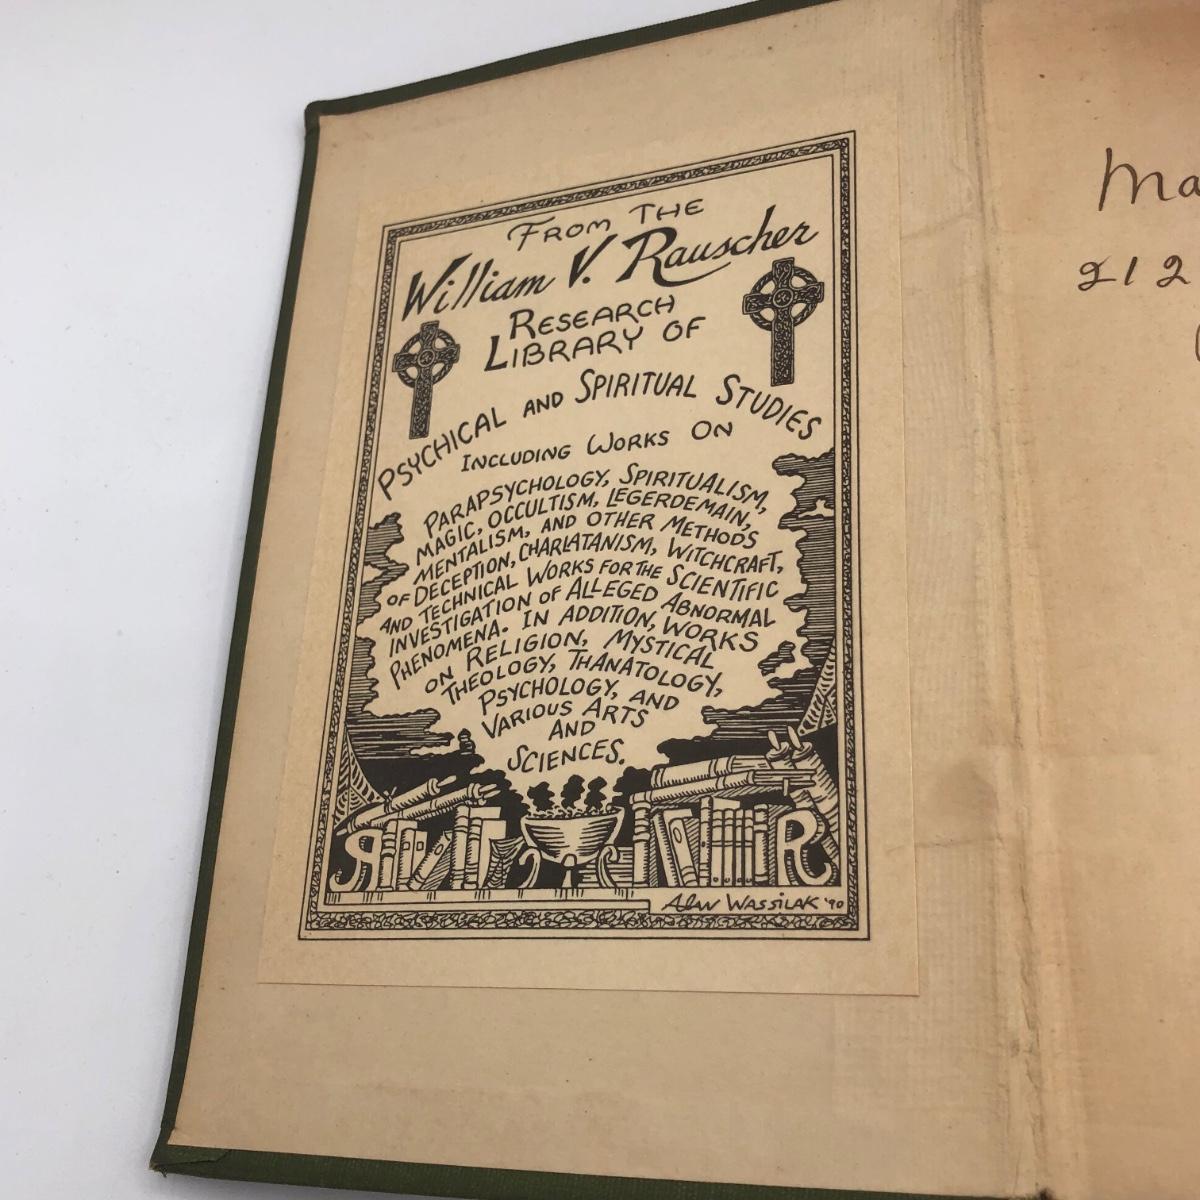 FROM THE
William V. Rauscher
RESEARCH
LIBRARY OF
PSYCHICAL AND SPIRITUAL STUDIES
INCLUDING WORKS ON
PARAPSYCHOLOGY, SPIRITUALISM,
MAGIC, OCCULTISM, LEGERDEMAIN,
MENTALISM, AND OTHER METHODS
OF DECEPTION, CHARLATANISM, WITCHCRAFT,
AND TECHNICAL WORKS FOR THE SCIENTIFIC
INVESTIGATION OF ALLEGED ABNORMAL
PHENOMENA. IN ADDITION, WORKS
ON RELIGION, MYSTICAL
THEOLOGY, THANATOLOGY,
PSYCHOLOGY, AND
VARIOUS ARTS
AND
SCIENCES.
R R
ALAN WASSILAK '90
Ma
212